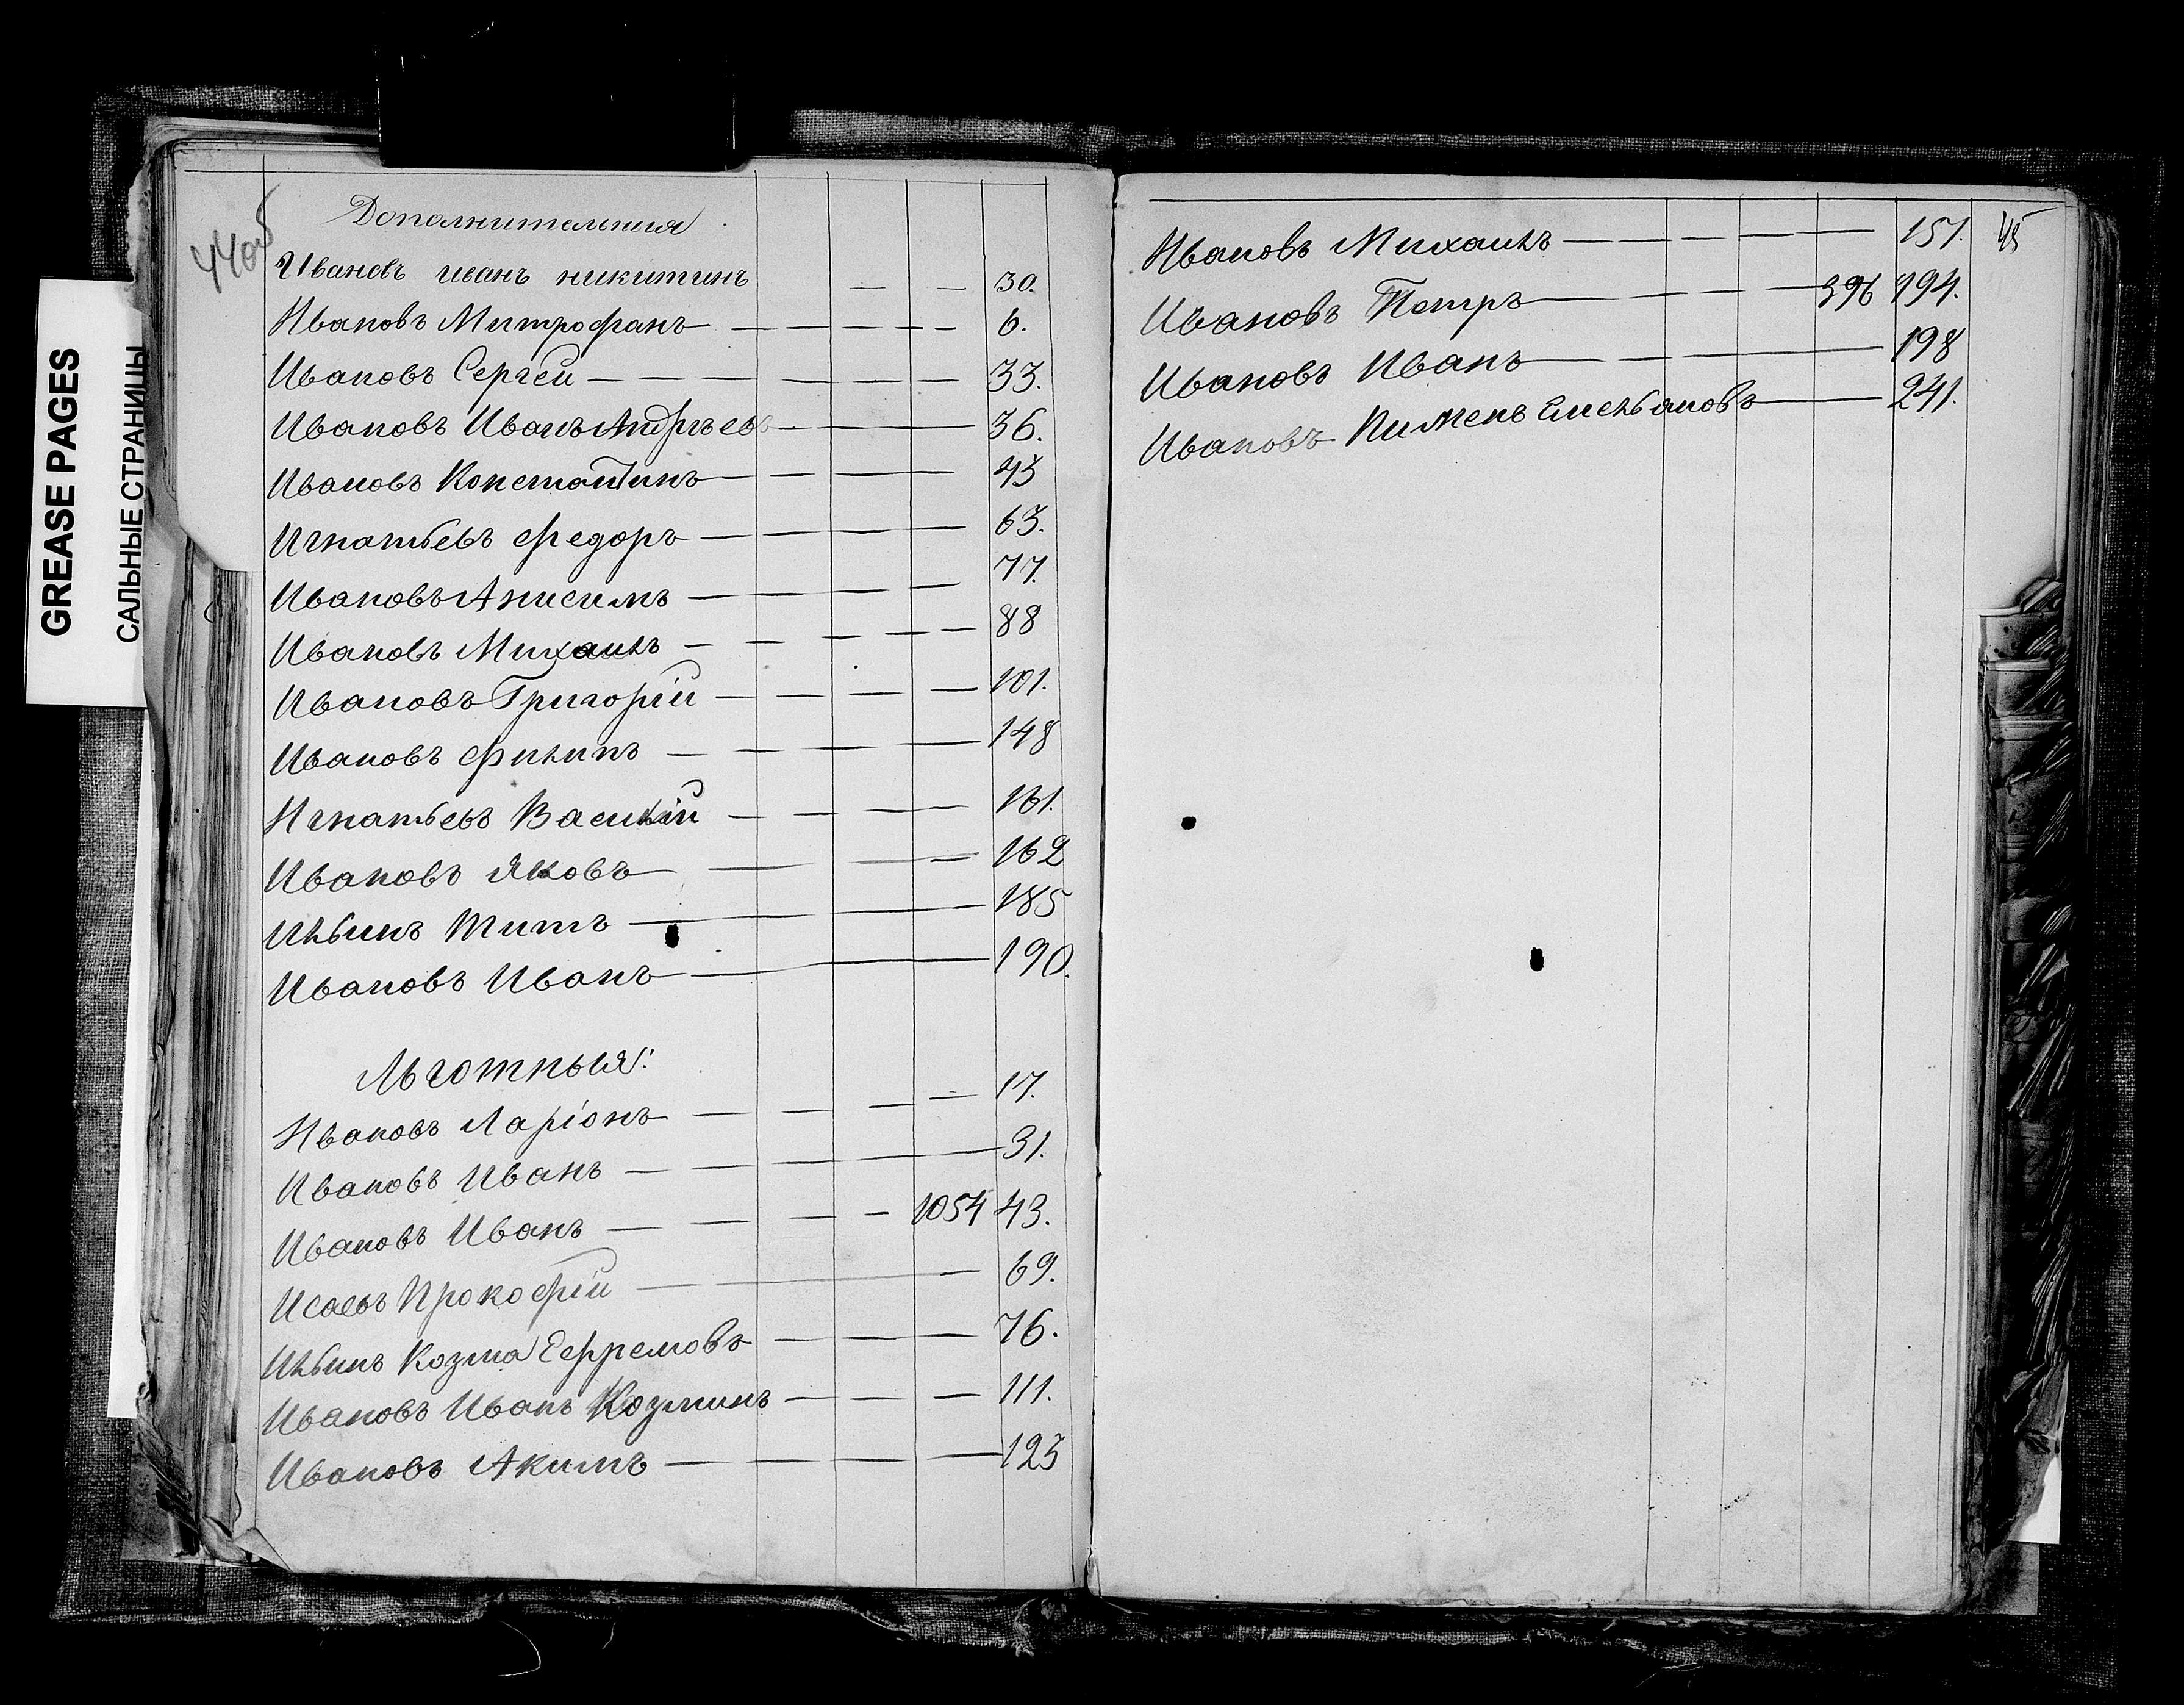 GREASE PAGES
САЛЬНЫЕ СТРАНИЦЫ
44об
Дополнительныя
Ивановъ иванъ никитинъ — — 30.
Ивановъ Митрофанъ — — — — — 6.
Ивановъ Сергей — — — — — — 33.
Ивановъ Иванъ Андрѣевъ — — — 36.
Ивановъ Константинъ — — — — 43
Игнатьевъ Федоръ — — — — 63.
Ивановъ Анисимъ — — — — 77.
Ивановъ Михаилъ — — — — — 88
Ивановъ Григорій — — — — 101.
Ивановъ Филипъ — — — — 148
Игнатьевъ Василій — — — — 161.
Ивановъ Яковъ — — — 162
Ильинъ Титъ — — — 185
Ивановъ Иванъ — — 190.
Льготныя:
Ивановъ Ларіонъ — — — — 17.
Ивановъ Иванъ — — — — 31.
Ивановъ Иванъ — — — — 1054 43.
Исаевъ Прокофій — — — 69.
Ильинъ Козма Ефремовъ — — — 76.
Ивановъ Иванъ Козминъ — — — 111.
Ивановъ Акимъ — — — — — 123
45
Ивановъ Михаилъ — — — — — 151.
Ивановъ Петръ — — — — 396 194.
Ивановъ Иванъ — — — 198
Ивановъ Пименъ Емельяновъ — — 241.